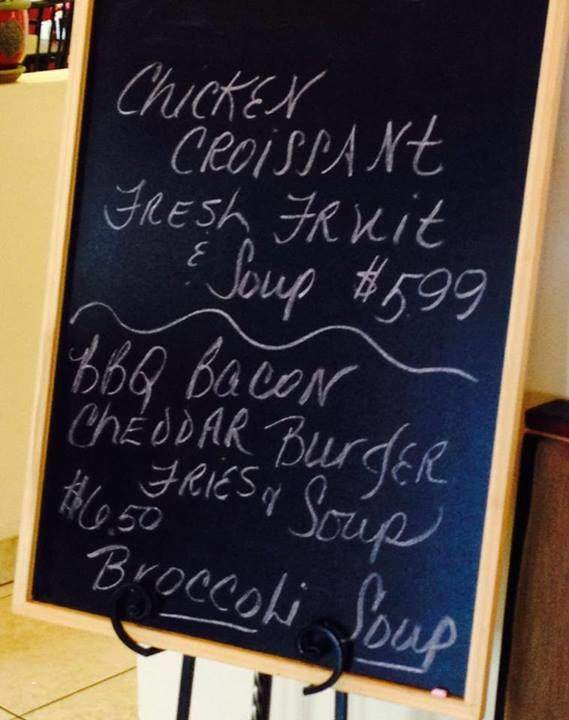 CHICKEN
CROISSANT
FRESH FRUIT
& Soup $5.99
BBQ BACON
CHEDDAR BURGER
FRIES & Soup
$6.50
BROCCOLI Soup